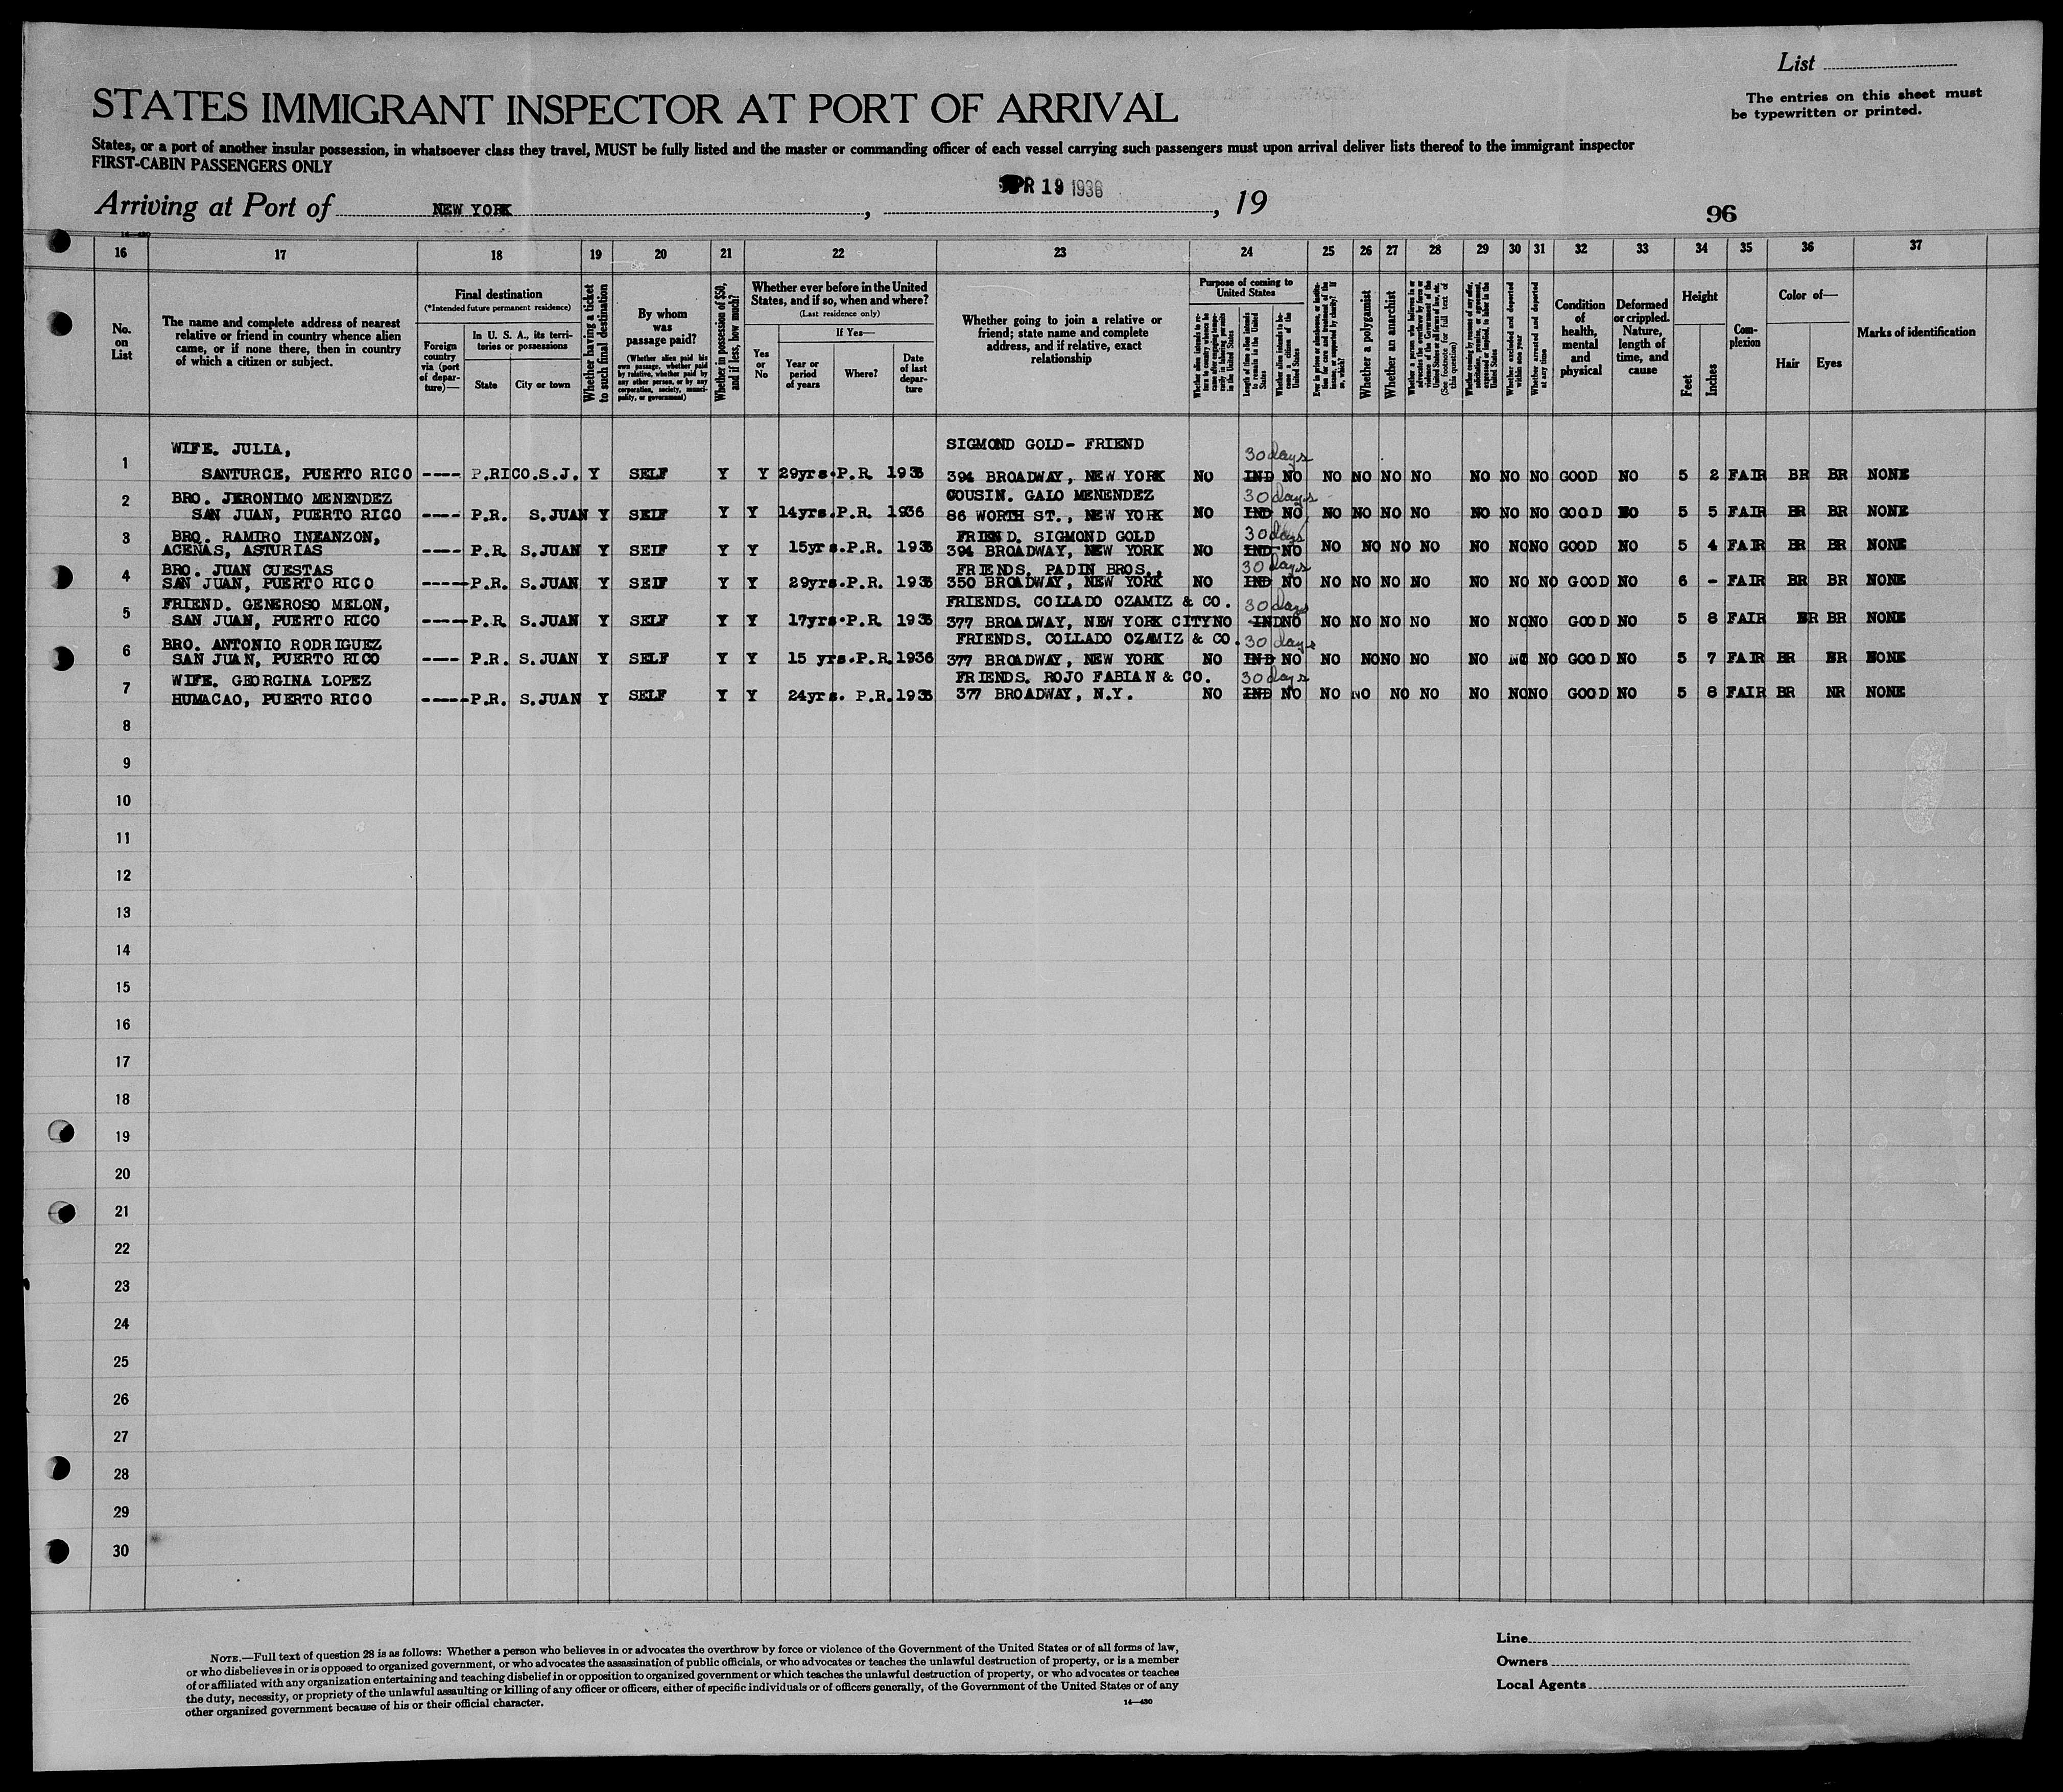 List
The entries on this sheet must
be typewritten or printed.
STATES IMMIGRANT INSPECTOR AT PORT OF ARRIVAL
States, or a port of another insular possession, in whatsoever class they travel, MUST be fully listed and the master or commanding officer of each vessel carrying such passengers must upon arrival deliver lists thereof to the immigrant inspector
FIRST-CABIN PASSENGERS ONLY
Arriving at Port of NEW YORK, APR 19 1936, 19
96
16—430
16 17 18 19 20 21 22 23 24 25 26 27 28 29 30 31 32 33 34 35 36 37
No. on List
The name and complete address of nearest relative or friend in country whence alien came, or if none there, then in country of which a citizen or subject.
Final destination
(*Intended future permanent residence)
Foreign country via (port of departure)—
In U. S. A., its territories or possessions
State
City or town
Whether having a ticket to such final destination
By whom was passage paid?
(Whether alien paid his own passage, whether paid by relative, whether paid by any other person, or by any corporation, society, municipality, or government)
Whether in possession of $50, and if less, how much?
Whether ever before in the United States, and if so, when and where?
(Last residence only)
Yes or No
If Yes—
Year or period of years
Where?
Date of last departure
Whether going to join a relative or friend; state name and complete address, and if relative, exact relationship
Purpose of coming to United States
Length of time alien intends to remain in the United States
Whether alien intends to become a citizen of the United States
Whether a polygamist
Whether an anarchist
Whether excluded and deported within one year
Whether arrested and deported at any time
Condition of health, mental and physical
Deformed or crippled. Nature, length of time, and cause
Height
Feet
Inches
Complexion
Color of—
Hair
Eyes
Marks of identification
WIFE. JULIA, SIGMOND GOLD- FRIEND 30 days
1 SANTURCE, PUERTO RICO ---- P.RICO.S.J. Y SELF Y Y 29yrs.P.R. 1936 394 BROADWAY, NEW YORK NO IND NO NO NO NO NO NO NO NO GOOD NO 5 2 FAIR BR BR NONE
2 BRO. JERONIMO MENENDEZ COUSIN. GALO MENENDEZ 30 days
SAN JUAN, PUERTO RICO ---- P.R. S.JUAN Y SELF Y Y 14yrs.P.R. 1936 86 WORTH ST., NEW YORK NO IND NO NO NO NO NO NO NO NO GOOD NO 5 5 FAIR BR BR NONE
3 BRO. RAMIRO INFANZON, FRIEND. SIGMOND GOLD 30 days
ACENAS, ASTURIAS ---- P.R. S.JUAN Y SELF Y Y 15yrs.P.R. 1936 394 BROADWAY, NEW YORK NO IND NO NO NO NO NO NO NO NO GOOD NO 5 4 FAIR BR BR NONE
4 BRO. JUAN CUESTAS FRIENDS. PADIN BROS., 30 days
SAN JUAN, PUERTO RICO ---- P.R. S.JUAN Y SELF Y Y 29yrs.P.R. 1936 350 BROADWAY, NEW YORK NO IND NO NO NO NO NO NO NO NO GOOD NO 6 - FAIR BR BR NONE
5 FRIEND. GENEROSO MELON, FRIENDS. COLLADO OZAMIZ & CO. 30 days
SAN JUAN, PUERTO RICO ---- P.R. S.JUAN Y SELF Y Y 17yrs.P.R. 1936 377 BROADWAY, NEW YORK CITY NO IND NO NO NO NO NO NO NO NO GOOD NO 5 8 FAIR BR BR NONE
6 BRO. ANTONIO RODRIGUEZ FRIENDS. COLLADO OZAMIZ & CO. 30 days
SAN JUAN, PUERTO RICO ---- P.R. S.JUAN Y SELF Y Y 15 yrs.P.R. 1936 377 BROADWAY, NEW YORK NO IND NO NO NO NO NO NO NO NO GOOD NO 5 7 FAIR BR NR NONE
7 WIFE. GEORGINA LOPEZ FRIENDS. ROJO FABIAN & CO. 30 days
HUMACAO, PUERTO RICO ---- P.R. S.JUAN Y SELF Y Y 24yrs. P.R. 1936 377 BROADWAY, N.Y. NO IND NO NO NO NO NO NO NO NO GOOD NO 5 8 FAIR BR NR NONE
8
9
10
11
12
13
14
15
16
17
18
19
20
21
22
23
24
25
26
27
28
29
30
NOTE.—Full text of question 28 is as follows: Whether a person who believes in or advocates the overthrow by force or violence of the Government of the United States or of all forms of law,
or who disbelieves in or is opposed to organized government, or who advocates the assassination of public officials, or who advocates or teaches the unlawful destruction of property, or is a member
of or affiliated with any organization entertaining and teaching disbelief in or opposition to organized government or which teaches the unlawful destruction of property, or who advocates or teaches
the duty, necessity, or propriety of the unlawful assaulting or killing of any officer or officers, either of specific individuals or of officers generally, of the Government of the United States or of any
other organized government because of his or their official character.
14—430
Line
Owners
Local Agents